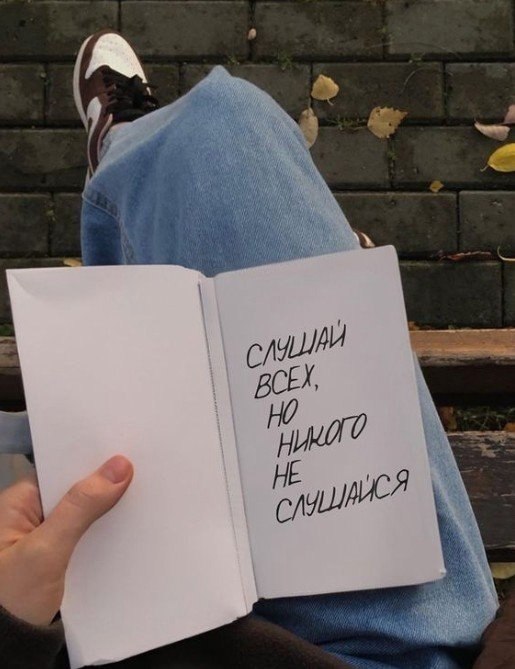 СЛУШАЙ
ВСЕХ,
НО
НИКОГО
НЕ
СЛУШАЙСЯ